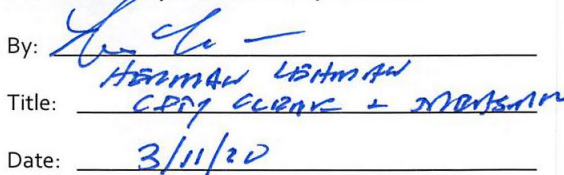 By:
HERMAN LEHMAN
Title: CITY CLERK +
Date: 3/11/20